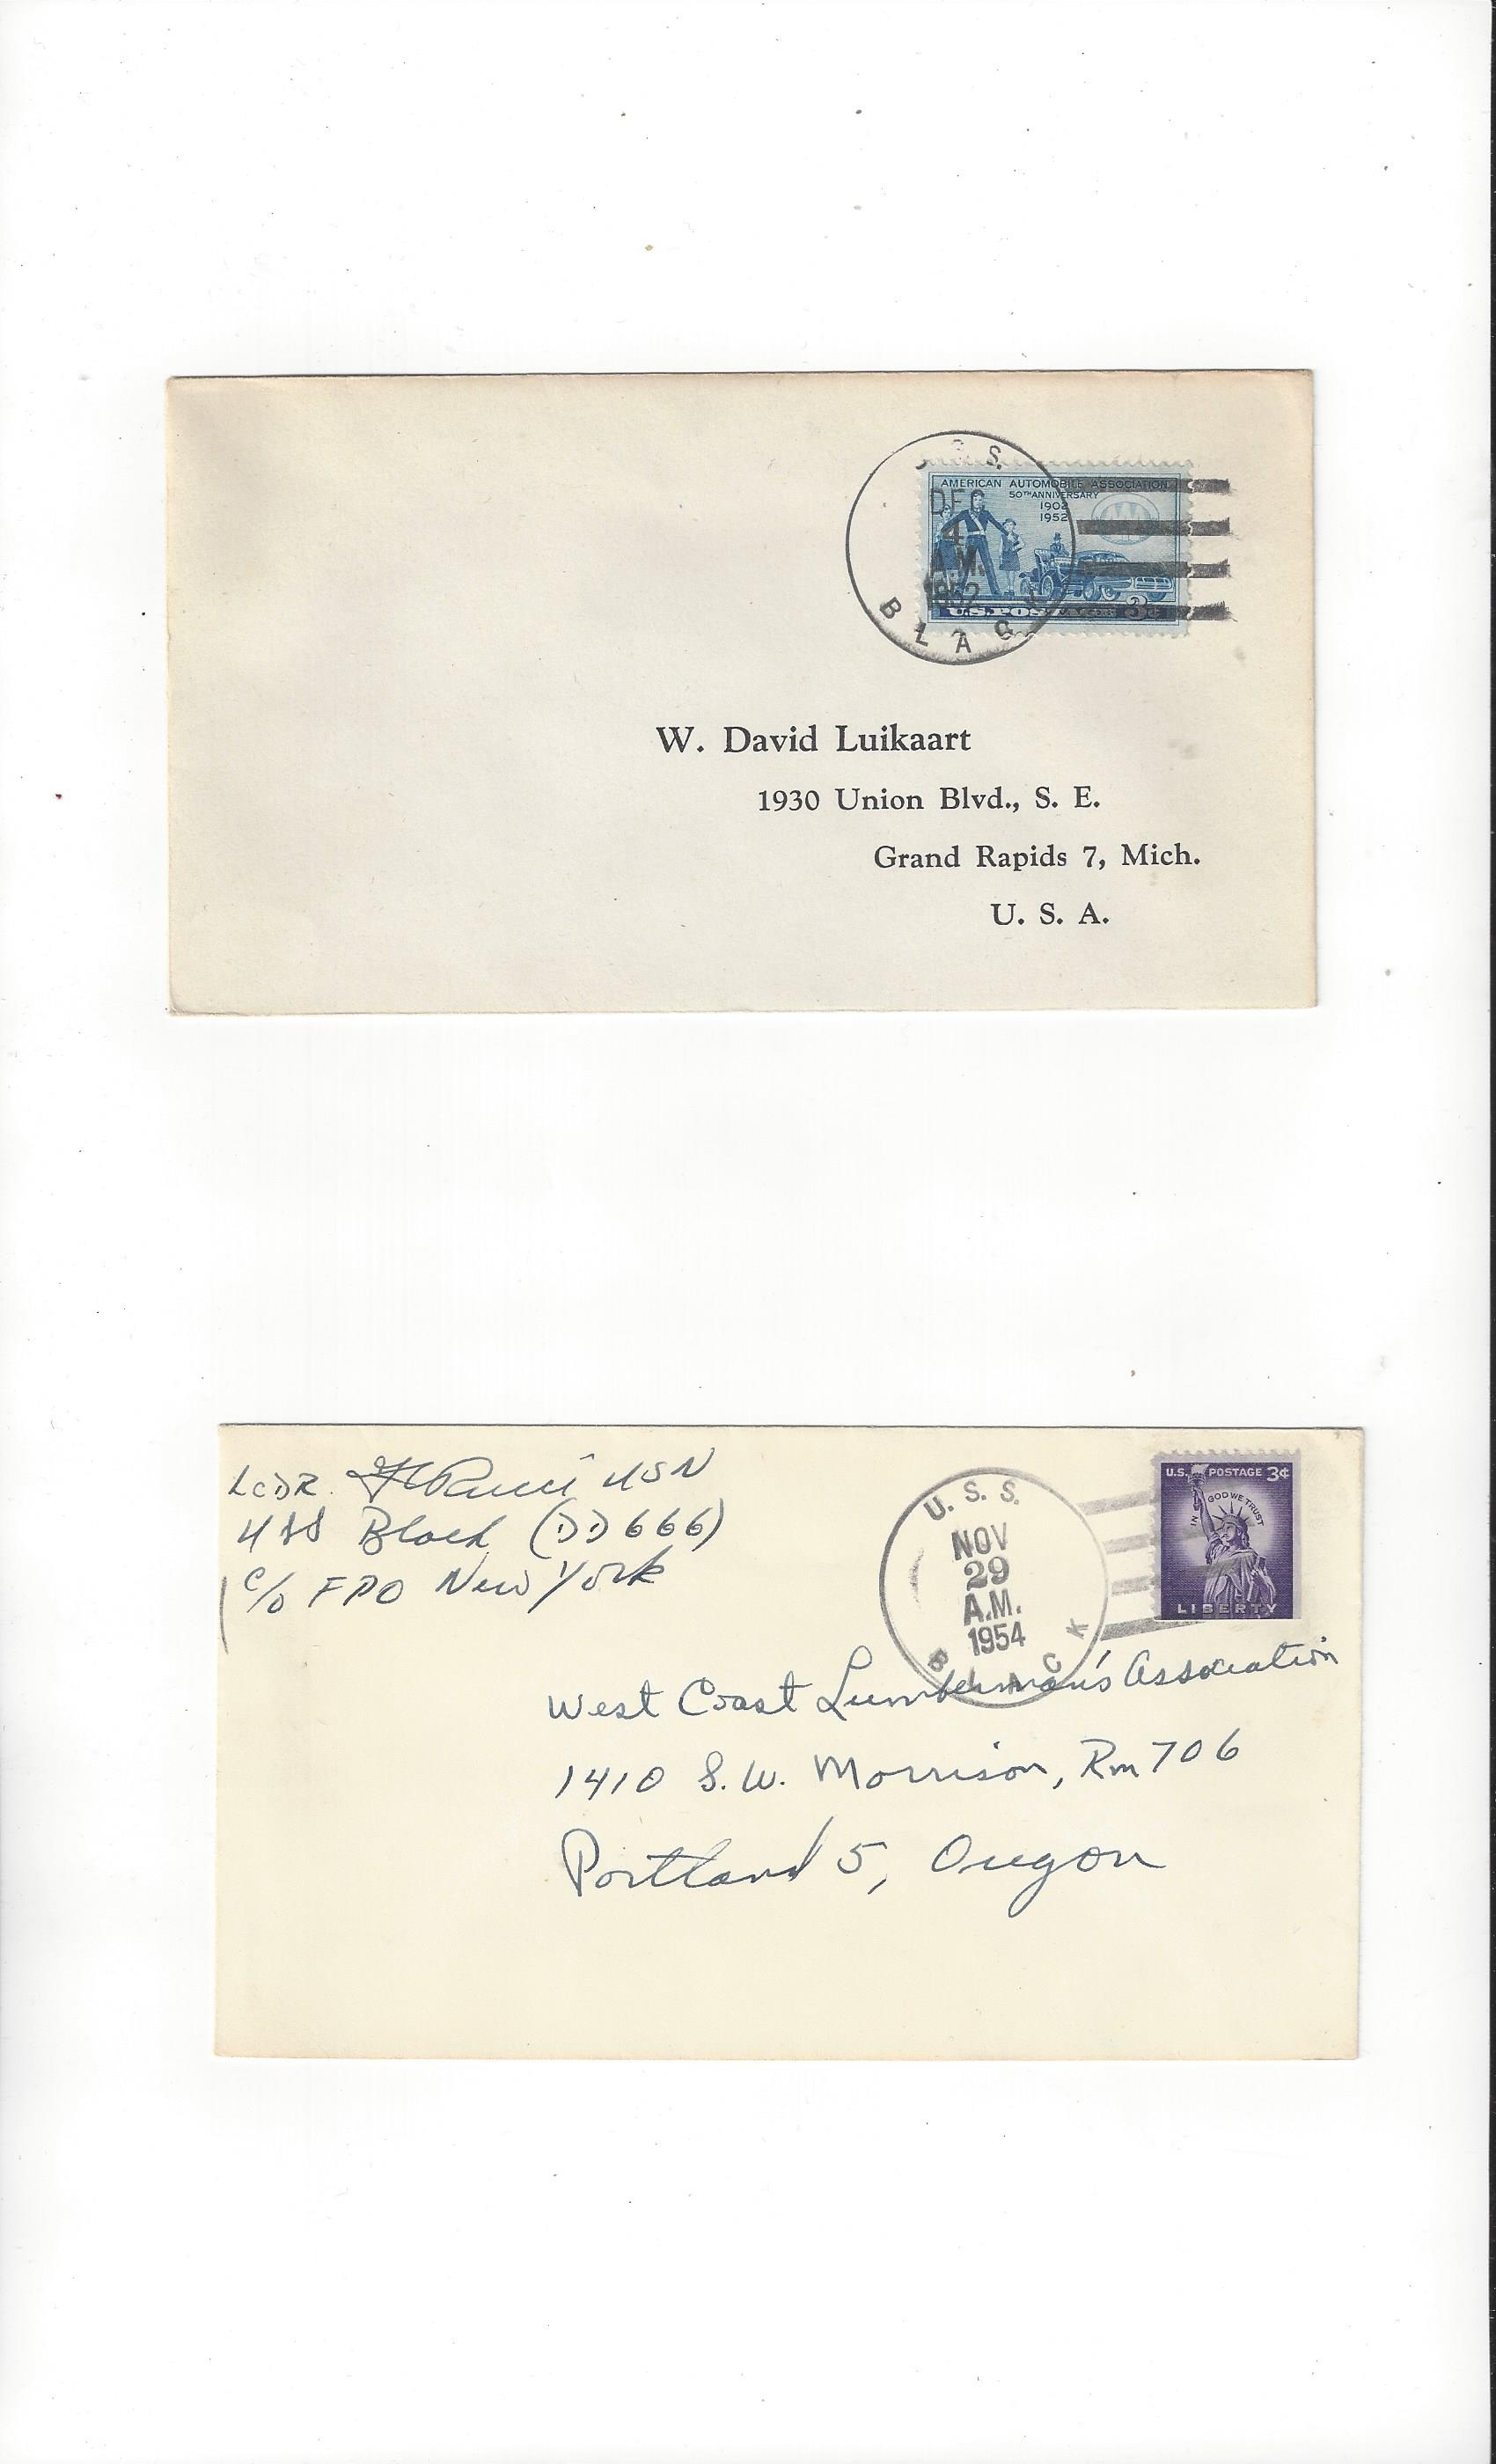 S.
DEC
4
A.M.
1952
BLACK
AMERICAN AUTOMOBILE ASSOCIATION
50TH ANNIVERSARY
1902
1952
U.S. POSTAGE 3¢
W. David Luikaart
1930 Union Blvd., S. E.
Grand Rapids 7, Mich.
U. S. A.
LCDR. USN
USS Black (DD666)
c/o FPO New York
U.S.S.
NOV
29
A.M.
1954
BLACK
U.S. POSTAGE 3¢
IN GOD WE TRUST
LIBERTY
West Coast Lumberman's Association
1410 S.W. Morrison, Rm 706
Portland 5, Oregon